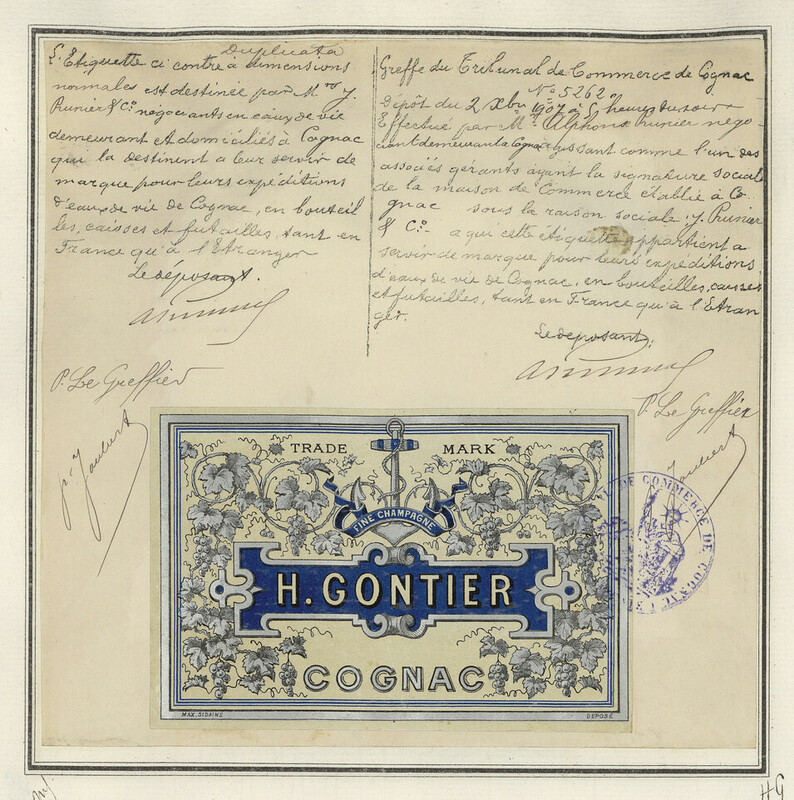 Duplicata
L'Etiquette ci contre à dimensions
normales est destinée par M.rs J.
Prunier & Co. négociants en eaux de vie
demeurant et domiciliés à Cognac
qui la destinent a leur servir de
marque pour leurs expéditions
d'eaux de vie de Cognac, en bouteil
les, caisses et futailles, tant en
France qu'à l'Etranger
Le deposant.
P. Le Greffier
Greffe du Tribunal de Commerce de Cognac
No 5262
Dépôt du 2 Xbre 1907 à 5 heures du soir
Effectué par Mr. Alphonse Prunier négo
ciant demeurant a Cognac agissant comme l'un des
associés gérants ayant la signature sociale
de la maison de Commerce établie à Co
gnac sous la raison sociale: J. Prunier
& Co. a qui cette étiquette appartient a
servir de marque pour leurs expéditions
d'eaux de vie de Cognac, en bouteilles, caisses
et futailles, tant en France qu'à l'Etran
ger.
Le deposant:
P. Le Greffier
TRADE MARK
FINE CHAMPAGNE
H. GONTIER
COGNAC
MAX. SIDAINE
DÉPOSÉ
DE COMMERCE DE COGNAC
HG